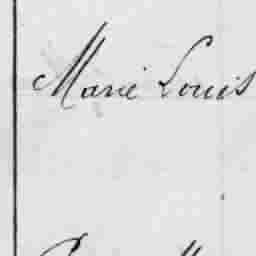 Marie Louis